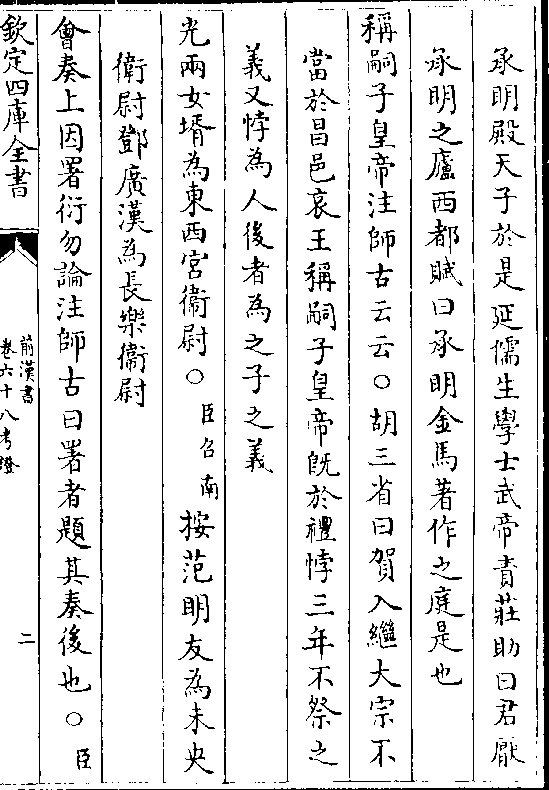 承明殿天子於是延儒生學士武帝責莊助曰君厭
承明之廬西都賦曰承明金馬著作之庭是也
稱嗣子皇帝注師古云云○胡三省曰賀入繼大宗不
當於昌邑哀王稱嗣子皇帝既於禮悖三年不祭之
義又悖為人後者為之子之義
光兩女壻為東西宮衞尉○臣召南按范明友為未央
衞尉鄧廣漢為長樂衞尉
會奏上因署衍勿論注師古曰署者題其奏後也○臣
欽定四庫全書
前漢書
卷六十八考證
二